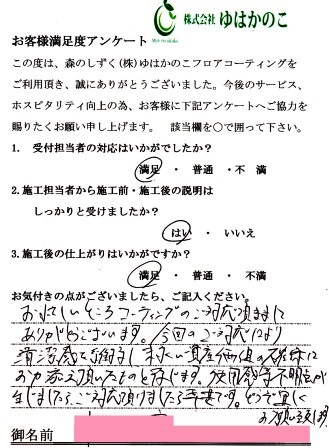 株式会社 ゆはかのこ
お客様満足度アンケート
この度は、森のしずく(株)ゆはかのこフロアコーティングを
ご利用頂き、誠にありがとうございました。今後のサービス、
ホスピタリティ向上の為、お客様に下記アンケートへご協力を
賜りたくお願い申し上げます。 該当欄を○で囲って下さい。
1. 受付担当者の対応はいかがでしたか?
満足 ・ 普通 ・ 不 満
2.施工担当者から施工前・施工後の説明は
しっかりと受けましたか?
はい ・ いいえ
3.施工後の仕上がりはいかがですか?
満足 ・ 普通 ・ 不満
お気付きの点がございましたら、ご記入ください。
お忙しいところコーティングのご対応頂きまして
ありがとうございます。今回のご対応により
清潔感を維持し
資産価値の確保に
お力添え頂いたものと存じます。使用勝手不明点が
生じましたらご対応頂けましたら幸甚です。どうぞ宜しく
お願い致します
御名前